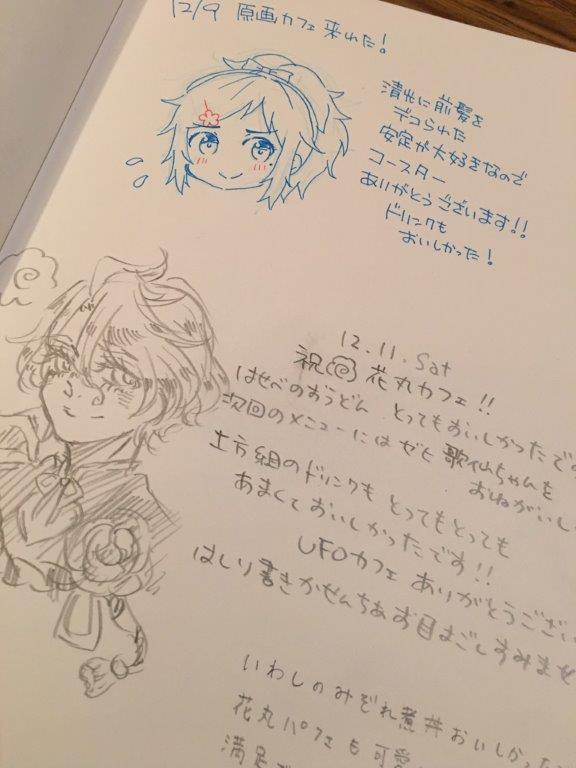 12/9 原画カフェ 来れた!
清光に前髪を
デコられた
安定が大好きなので
コースター
ありがとうございます!!
ドリンクも
おいしかった!
12.11.Sat
祝 花丸カフェ!!
はせべのおうどん とってもおいしかったです
次回のメニューにはぜひ 歌仙ちゃんを
おねがいし
土方組のドリンクも とってもとっても
あまくておいしかったです!!
UFOカフェ ありがとうござい
はしり書きかせんちゃ お目よごしすみませ
いわしのみぞれ煮丼おいしかった
花丸パフェも可愛
満足